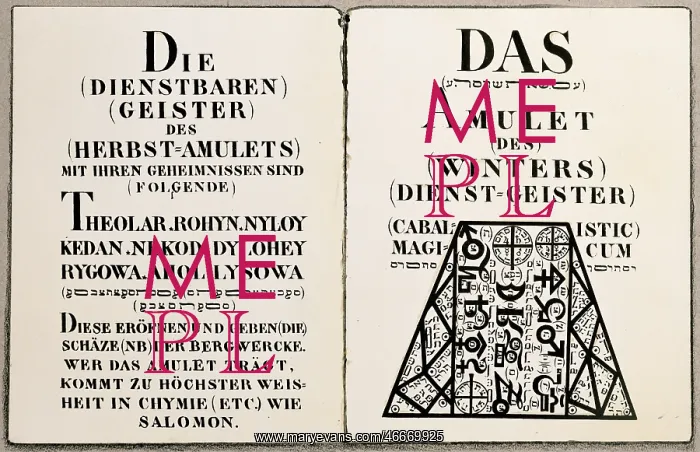 DIE
(DIENSTBAREN)
(GEISTER)
DES
(HERBST=AMULETS)
MIT IHREN GEHEIMNISSEN SIND
(FOLGENDE)
THEOLAR, ROHYN, NYLOY
KEDAN,
RYGOWA, LYSOWA
DIESE ERÖFNEN UND GEBEN (DIE)
SCHÄZE (NB) DER BERGWERCKE.
WER DAS AMULET TRÄGT,
KOMMT ZU HÖCHSTER WEIS=
HEIT IN CHYMIE (ETC.) WIE
SALOMON.
ME
PL
DAS
AMULET
(DES)
(WINTERS)
(DIENST=GEISTER)
(CABAL= ISTIC)
MAGI= CUM
ME
PL
www.maryevans.com/46669925